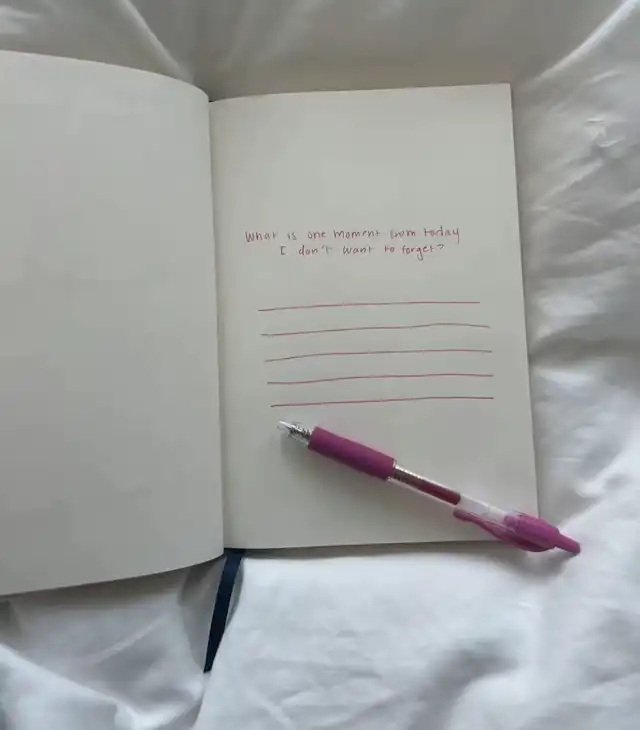 What is one moment from today
I don't want to forget?